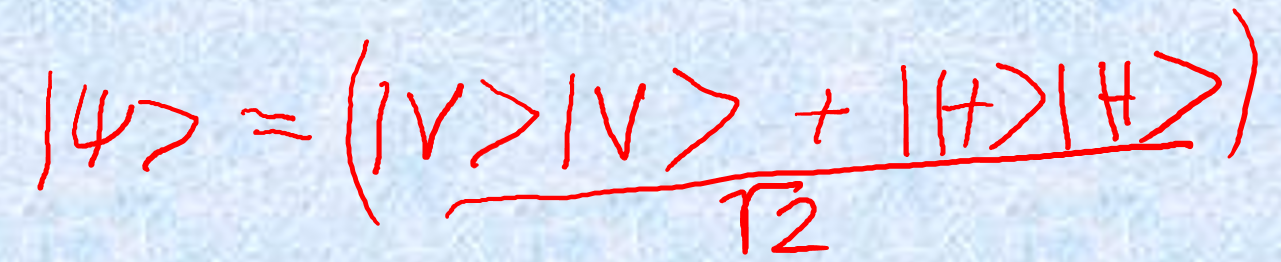 |ψ> = (|V>|V> + |H>|H>)
√2